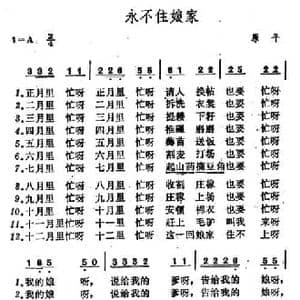 永不住娘家
1=A 2/4
3 3 2 1 1 2 2 6 6 6 1 2 2 2 5 2 2
1.正月里 忙呀 正月里 忙呀 请人 换帖 也要 忙呀
2.二月里 忙呀 二月里 忙呀 拆洗 衣裳 也要 忙呀
3.三月里 忙呀 三月里 忙呀 下籽 也要 忙呀
4.四月里 忙呀 四月里 忙呀 推碾 磨磨 也要 忙呀
5.五月里 忙呀 五月里 忙呀 送饭 也要 忙呀
6.六月里 忙呀 六月里 忙呀 割麦 打场 也要 忙呀
7.七月里 忙呀 七月里 忙呀 起山药摘豆角 也要 忙呀
8.八月里 忙呀 八月里 忙呀 收割 庄稼 也要 忙呀
9.九月里 忙呀 九月里 忙呀 庄稼 上场 也要 忙呀
10.十月里 忙呀 十月里 忙呀 安顿 棉衣 也要 忙呀
11.十一月里 忙呀 十一里 忙呀 赶上 毛驴 叫我 来呀
12.十二月里 忙呀 十二里 忙呀 这一回 娘家 住不 上呀
1.我的娘 呀, 说给我的 爹呀, 告给我的 娘呀,
2.我的娘 呀, 说给我的 爹呀, 告给我的 娘呀,